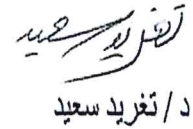 تغريد سعيد
د / تغريد سعيد